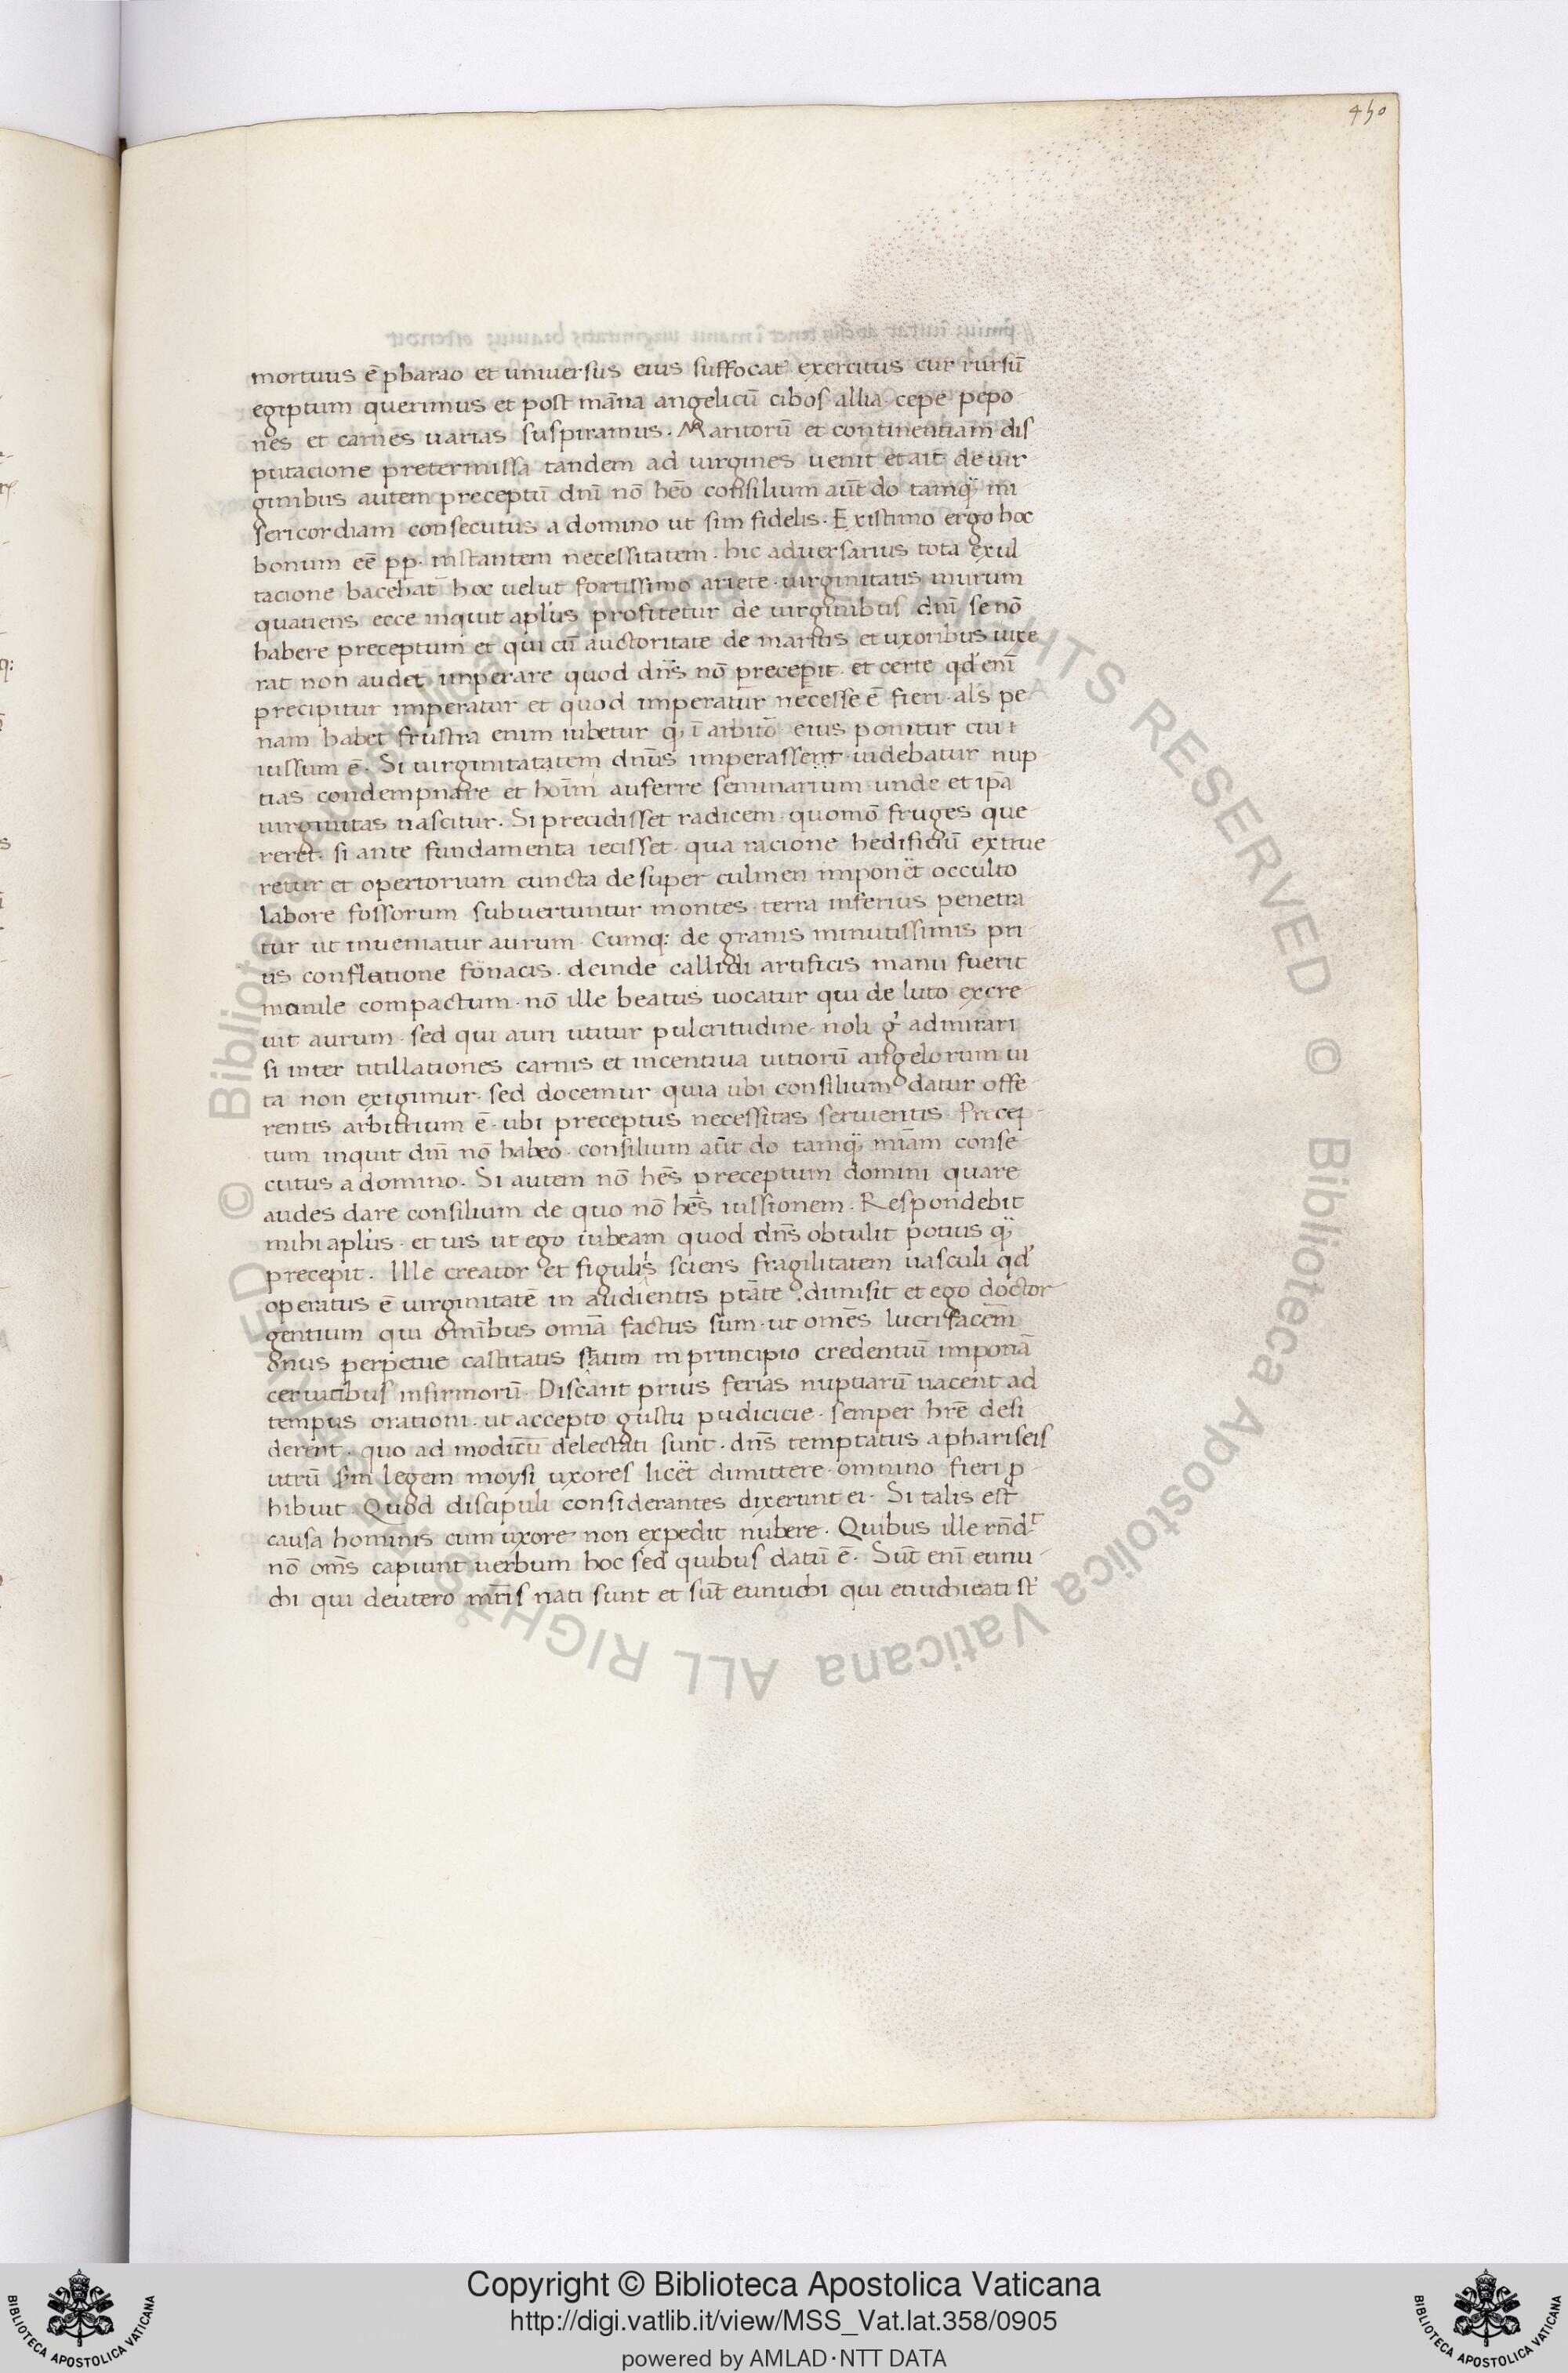 450
mortuus ē pharao et universus eius suffocat exercitus cur rursū
egiptum querimus et post māna angelicū cibos allia cepe pepo
nes et carnes uarias suspiramus. Maritorū et continentiam dis
putacione pretermissa tandem ad uirgines uenit et ait de uir
ginibus autem preceptū dnī nō hēo consilium aūt do tamq̈ mi
sericordiam consecutus a domino ut sim fidelis. Existimo ergo hoc
bonum eē pp. instantem necessitatem. hic aduersarius tota exul
tacione bacchat̄ hoc uelut fortissimo ariete uirginitatis murum
quatiens ecce inquit aplus profitetur de uirginibus dnī se nō
habere preceptum et qui cū auctoritate de maritis et uxoribus iuxe
rat non audet imperare quod dns̄ nō precepit. et certe qd' enī
precipitur imperatur et quod imperatur necesse ē fieri. als̄ pe
nam habet frustra enim iubetur q, ī arbitō eius ponitur cui t
iussum ē. Si uirginitatatem dnūs imperassent uidebatur nup
tias condempnare et hoīm auferre seminarium unde et ipā
uirginitas nascitur. Si precidisset radicem quomō fruges que
reret. si ante fundamenta iecisset qua racione hedificiū extrue
retur et opertorium cuncta desuper culmen imponēt occulto
labore fossorum subuertuntur montes terra inferius penetra
tur ut inueniatur aurum. Cumq: de granis minutissimis pri
us conflatione fonacis. deinde callidi artificis manu fuerit
monile compactum. nō ille beatus uocatur qui de luto excre
uit aurum. sed qui auri utitur pulcritudine. noli g̊ admirari
si inter titillationes carnis et incentiua uitiorū angelorum ui
ta non exigimur. sed docemur quia ubi consilium datur offe
rentis arbitrium ē. ubi preceptus necessitas seruientis. Precep
tum inquit dnī nō habeo. consilium aūt do tamq̈ miām conse
cutus a domino. Si autem nō hēs preceptum domini quare
audes dare consilium de quo nō hēs iussionem. Respondebit
mihi aplūs. et uis ut ego iubeam quod dns̄ obtulit potius q̈
precepit. Ille creator et figulis sciens fragilitatem uasculi qd'
operatus ē uirginitatē in audientis ptāte dimisit et ego doctor
gentium qui omībus omīa factus sum. ut omēs lucrifacēm
onus perpetue castitatis statim in principio credentiū imponā
ceruicibus infirmorū. Discant prius ferias nuptiarū uacent ad
tempus orationi. ut accepto gustu pudicicie. semper hrē desi
derent. quo ad modicū delectati sunt. dns̄ temptatus a phariseis
utrū sm̄ legem moysi uxores licēt dimittere. omnino fieri p̄
hibuit. Quod discipuli considerantes dixerunt ei. Si talis est
causa hominis cum uxore non expedit nubere. Quibus ille rn̄d.t
nō oms̄ capiunt uerbum hoc sed quibus datū ē. Sūt enī eunu
chi qui deutero mrīs nati sunt et sūt eunuchi qui enuchicati st̄
Copyright © Biblioteca Apostolica Vaticana
http://digi.vatlib.it/view/MSS_Vat.lat.358/0905
powered by AMLAD·NTT DATA
BIBLIOTECA APOSTOLICA VATICANA
BIBLIOTECA APOSTOLICA VATICANA
© Biblioteca Apostolica Vaticana ALL RIGHTS RESERVED © Biblioteca Apostolica Vaticana ALL RIGHTS RESERVED